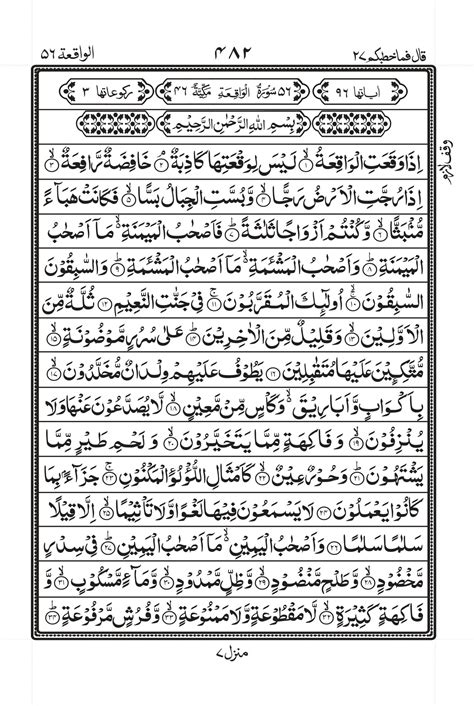 قال فماخطبكم ٢٧ ٤٨٢ الواقعة ٥٦
اٰیاتها ٩٦ ٥٦ سُوْرَةُ الْوَاقِعَةِ مَكِّيَّةٌ ٤٦ ركوعاتها ٣
بِسْمِ اللّٰهِ الرَّحْمٰنِ الرَّحِيْمِ
وقف لازم
اِذَا وَقَعَتِ الْوَاقِعَةُ ۙ﴿١﴾ لَيْسَ لِوَقْعَتِهَا كَاذِبَةٌ ۘ﴿٢﴾ خَافِضَةٌ رَّافِعَةٌ ۙ﴿٣﴾
اِذَا رُجَّتِ الْاَرْضُ رَجًّا ۙ﴿٤﴾ وَّبُسَّتِ الْجِبَالُ بَسًّا ۙ﴿٥﴾ فَكَانَتْ هَبَآءً
مُّنْۢبَثًّا ۙ﴿٦﴾ وَّكُنْتُمْ اَزْوَاجًا ثَلٰثَةً ؕ﴿٧﴾ فَاَصْحٰبُ الْمَيْمَنَةِ ۙ۬ مَاۤ اَصْحٰبُ
الْمَيْمَنَةِ ؕ﴿٨﴾ وَاَصْحٰبُ الْمَشْـَٔمَةِ ۙ۬ مَاۤ اَصْحٰبُ الْمَشْـَٔمَةِ ؕ﴿٩﴾ وَالسّٰبِقُوْنَ
السّٰبِقُوْنَ ۚۙ﴿١٠﴾ اُولٰٓئِكَ الْمُقَرَّبُوْنَ ۚ﴿١١﴾ فِيْ جَنّٰتِ النَّعِيْمِ ﴿١٢﴾ ثُلَّةٌ مِّنَ
الْاَوَّلِيْنَ ۙ﴿١٣﴾ وَقَلِيْلٌ مِّنَ الْاٰخِرِيْنَ ؕ﴿١٤﴾ عَلٰى سُرُرٍ مَّوْضُوْنَةٍ ۙ﴿١٥﴾
مُّتَّكِـِٕيْنَ عَلَيْهَا مُتَقٰبِلِيْنَ ﴿١٦﴾ يَطُوْفُ عَلَيْهِمْ وِلْدَانٌ مُّخَلَّدُوْنَ ۙ﴿١٧﴾
بِاَكْوَابٍ وَّاَبَارِيْقَ ۙ۬ وَكَاْسٍ مِّنْ مَّعِيْنٍ ۙ﴿١٨﴾ لَّا يُصَدَّعُوْنَ عَنْهَا وَلَا
يُنْزِفُوْنَ ۙ﴿١٩﴾ وَفَاكِهَةٍ مِّمَّا يَتَخَيَّرُوْنَ ۙ﴿٢٠﴾ وَلَحْمِ طَيْرٍ مِّمَّا
يَشْتَهُوْنَ ؕ﴿٢١﴾ وَحُوْرٌ عِيْنٌ ۙ﴿٢٢﴾ كَاَمْثَالِ اللُّؤْلُؤِ الْمَكْنُوْنِ ۚ﴿٢٣﴾ جَزَآءًۢ بِمَا
كَانُوْا يَعْمَلُوْنَ ﴿٢٤﴾ لَا يَسْمَعُوْنَ فِيْهَا لَغْوًا وَّلَا تَاْثِيْمًا ۙ﴿٢٥﴾ اِلَّا قِيْلًا
سَلٰمًا سَلٰمًا ﴿٢٦﴾ وَاَصْحٰبُ الْيَمِيْنِ ۙ۬ مَاۤ اَصْحٰبُ الْيَمِيْنِ ؕ﴿٢٧﴾ فِيْ سِدْرٍ
مَّخْضُوْدٍ ۙ﴿٢٨﴾ وَّطَلْحٍ مَّنْضُوْدٍ ۙ﴿٢٩﴾ وَّظِلٍّ مَّمْدُوْدٍ ۙ﴿٣٠﴾ وَّمَآءٍ مَّسْكُوْبٍ ۙ﴿٣١﴾ وَّ
فَاكِهَةٍ كَثِيْرَةٍ ۙ﴿٣٢﴾ لَّا مَقْطُوْعَةٍ وَّلَا مَمْنُوْعَةٍ ۙ﴿٣٣﴾ وَّفُرُشٍ مَّرْفُوْعَةٍ ؕ﴿٣٤﴾
منزل ٧